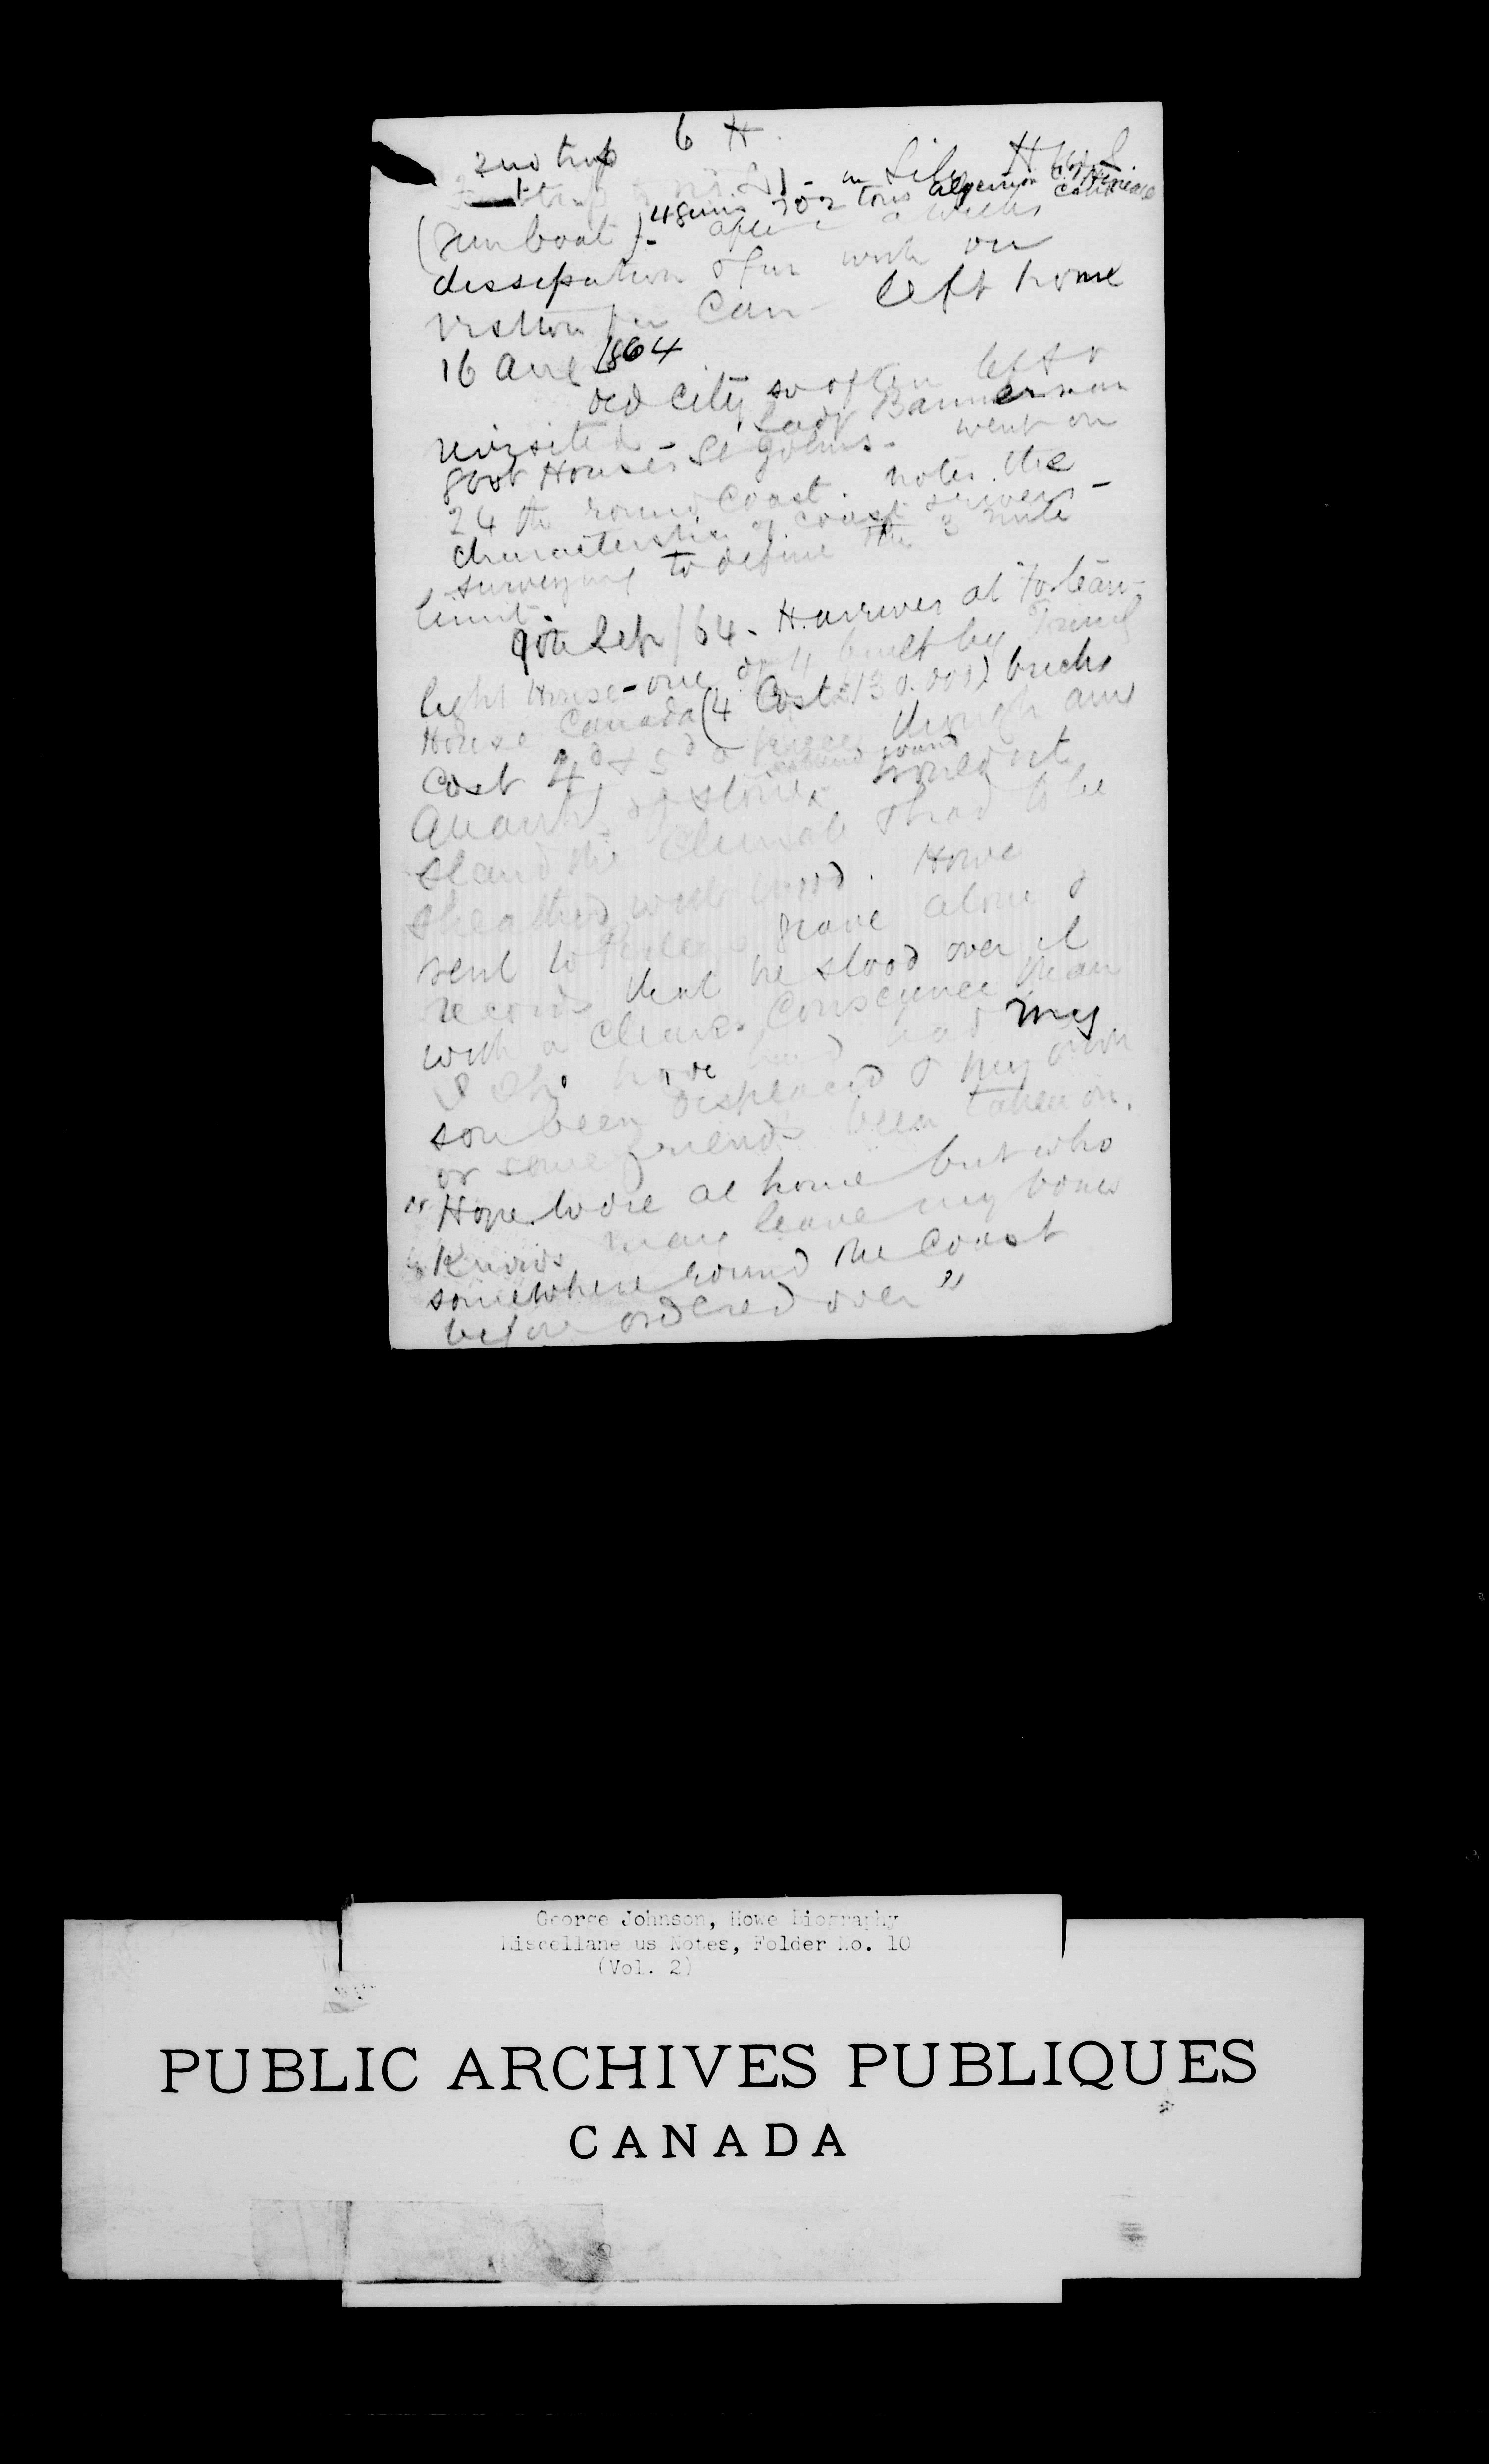 6 H.
2nd trip
in Lily H.M.S.
(Gun boat). 4 Guns 702 tons Algernon
after a weeks
dissipation & fun with our
visitors from Can - left home
16 Aug 1864
old City so often left &
revisited - Lady Bannerman
Govt House St Johns. went on
24th round coast. notes the
characteristics of coast & rivers -
surveying to define the 3 mile
limit.
9th Sep/64. H. arrives at Forteau
light House - one of 4 built by Trinity
House Canada (4 Cost £130.000) bricks
Cost 4d & 5d a piece though any
quantity of stone around would not
stand the Climate & had to be
sheathed with wood. Howe
went to Perleys grave alone &
records that he stood over it
with a clearer Conscience than
I sho have had had my
son been displaced & my own
or some friends been taken on.
" Hope to die at home but who
" Knows may leave my bones
somewhere round the Coast
before ordered over "
George Johnson, Howe Biography
Miscellane us Notes, Folder No. 10
(Vol. 2)
PUBLIC ARCHIVES PUBLIQUES
CANADA